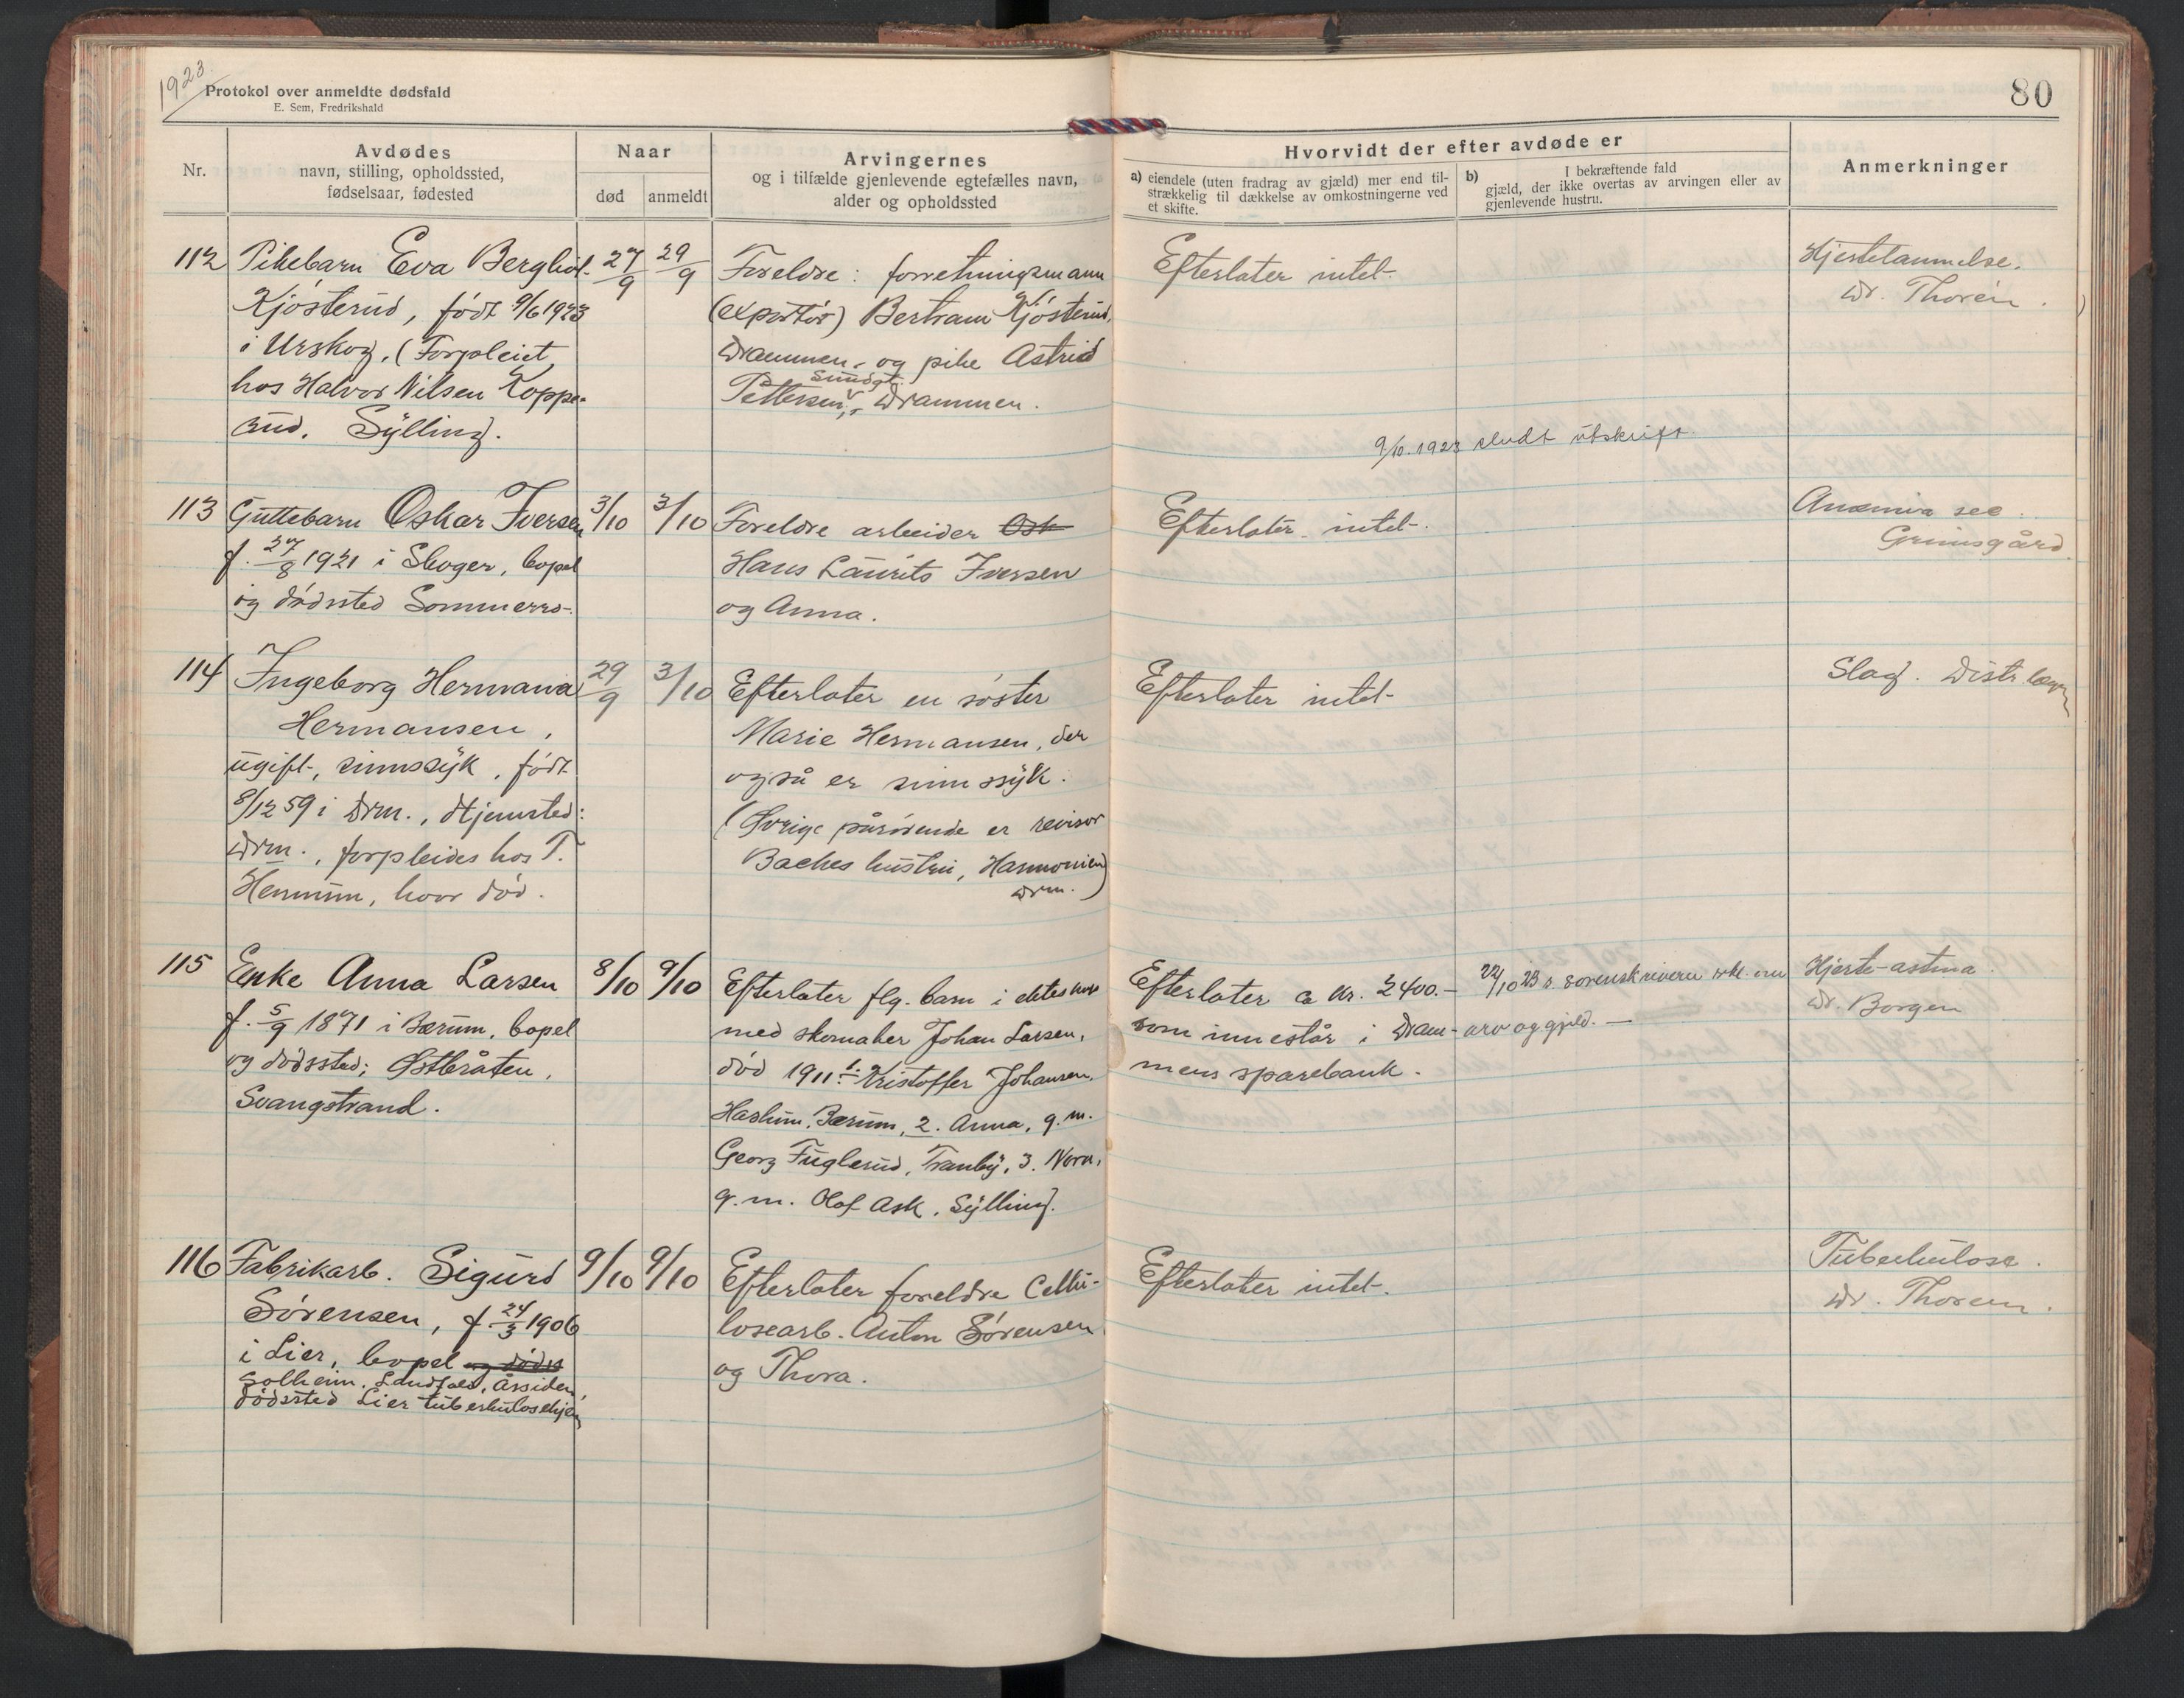 1923.
Protokol over anmeldte dødsfald
E. Sem, Fredrikshald
80
Nr.
Avdødes
navn, stilling, opholdssted,
fødselsaar, fødested
Naar
død
anmeldt
Arvingernes
og i tilfælde gjenlevende egtefælles navn,
alder og opholdssted
Hvorvidt der efter avdøde er
a) eiendele (uten fradrag av gjæld) mer end til-
strækkelig til dækkelse av omkostningerne ved
et skifte.
b) I bekræftende fald
gjæld, der ikke overtas av arvingen eller av
gjenlevende hustru.
Anmerkninger
112
Pikebarn Eva Bergliot
Kjøsterud, født 9/6 1923
i Urskog. (Forpleiet
hos Halvor Nilsen Koppe-
rud. Sylling.
27/9
29/9
Foreldre: forretningsmann
(exportør) Bertram Kjøsterud,
Drammen, og pike Astrid
Pettersen, Sundgt. Drammen.
Efterlater intet.
9/10.1923 sendt utskrift.
Hjertelammelse.
Dr. Thorén.
113
Guttebarn Oskar Iversen
f. 27/8 1921 i Skoger, bopel
og dødssted Sommerro.
3/10
3/10
Foreldre arbeider Osk
Hans Laurits Iversen
og Anna.
Efterlater intet.
Anæmia
Grimsgård.
114
Ingeborg Hermana
Hermansen,
ugift, sinnssyk, født
8/12 59 i Drm., Hjemsted:
Drm., forpleides hos T.
Hennum, hvor død.
29/9
3/10
Efterlater en søster
Marie Hermansen, der
også er sinnssyk.
(Øvrige pårørende er revisor
Baches hustru, Harmonien
Drm.)
Efterlater intet
Slag. Distr.læg
115
Enke Anna Larsen
f. 5/9 1871 i Bærum, bopel
og dødssted: Østbråten,
Svangstrand.
8/10
9/10
Efterlater flg. barn i ekteskap
med skomaker Johan Larsen,
død 1911: 1. Kristoffer Johansen,
Haslum, Bærum, 2. Anna, g.m.
Georg Fuglerud, Tranby, 3. Nora,
g.m. Olaf Ask, Sylling.
Efterlater ca kr. 2400.–
som innestår i Dram-
mens sparebank.
22/10 23 s. sorenskriveren erkl. om
arv og gjeld. —
Hjerte-astma.
Dr. Borgen
116
Fabrikarb. Sigurd
Sørensen, f. 24/3 1906
i Lier, bopel og døds
Solheim, Landfald, Åssiden,
dødssted Lier tuberkulosehjem
9/10
9/10
Efterlater foreldre Cellu-
losearb. Anton Sørensen
og Thora.
Efterlater intet.
Tuberkulose.
Dr. Thoren.